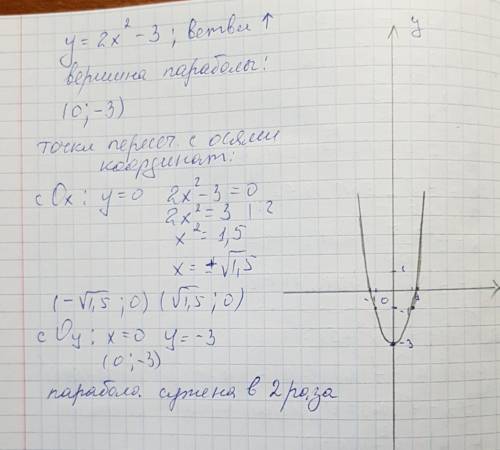 y = 2x² - 3 ; ветви ↑
вершина параболы:
(0; -3)
точки пересеч с осями
координат:
с Ox: y=0 2x² - 3 = 0
2x² = 3 | : 2
x² = 1,5
x = ±√1,5
(-√1,5 ; 0) (√1,5 ; 0)
с Oy: x=0 y=-3
(0; -3)
парабола сужена в 2 раза
y
1
-1 0 1
-1
-3